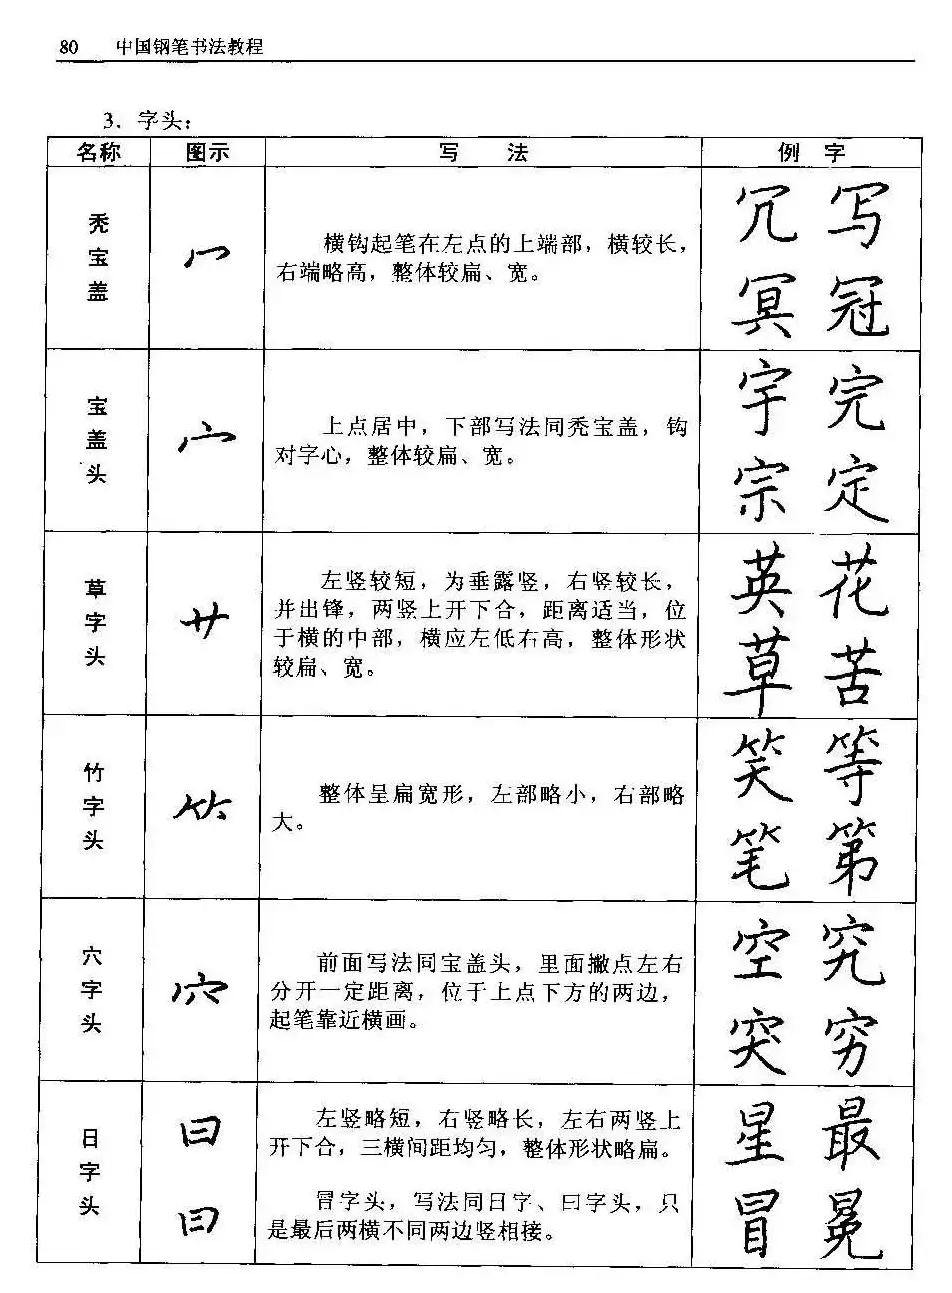 80 中国钢笔书法教程
3. 字头:
名称 图示 写 法 例 字
秃宝盖
冖
横钩起笔在左点的上端部，横较长，
右端略高，整体较扁、宽。
冗 写
冥 冠
宝盖头
宀
上点居中，下部写法同秃宝盖，钩
对字心，整体较扁、宽。
宇 完
宗 定
草字头
艹
左竖较短，为垂露竖，右竖较长，
并出锋，两竖上开下合，距离适当，位
于横的中部，横应左低右高，整体形状
较扁、宽。
英 花
草 苦
竹字头
⺮
整体呈扁宽形，左部略小，右部略
大。
笑 等
笔 第
穴字头
穴
前面写法同宝盖头，里面撇点左右
分开一定距离，位于上点下方的两边，
起笔靠近横画。
空 究
突 穷
日字头
日
左竖略短，右竖略长，左右两竖上
开下合，三横间距均匀，整体形状略扁。
星 最
冃
冒字头，写法同日字、曰字头，只
是最后两横不同两边竖相接。
冒 冕